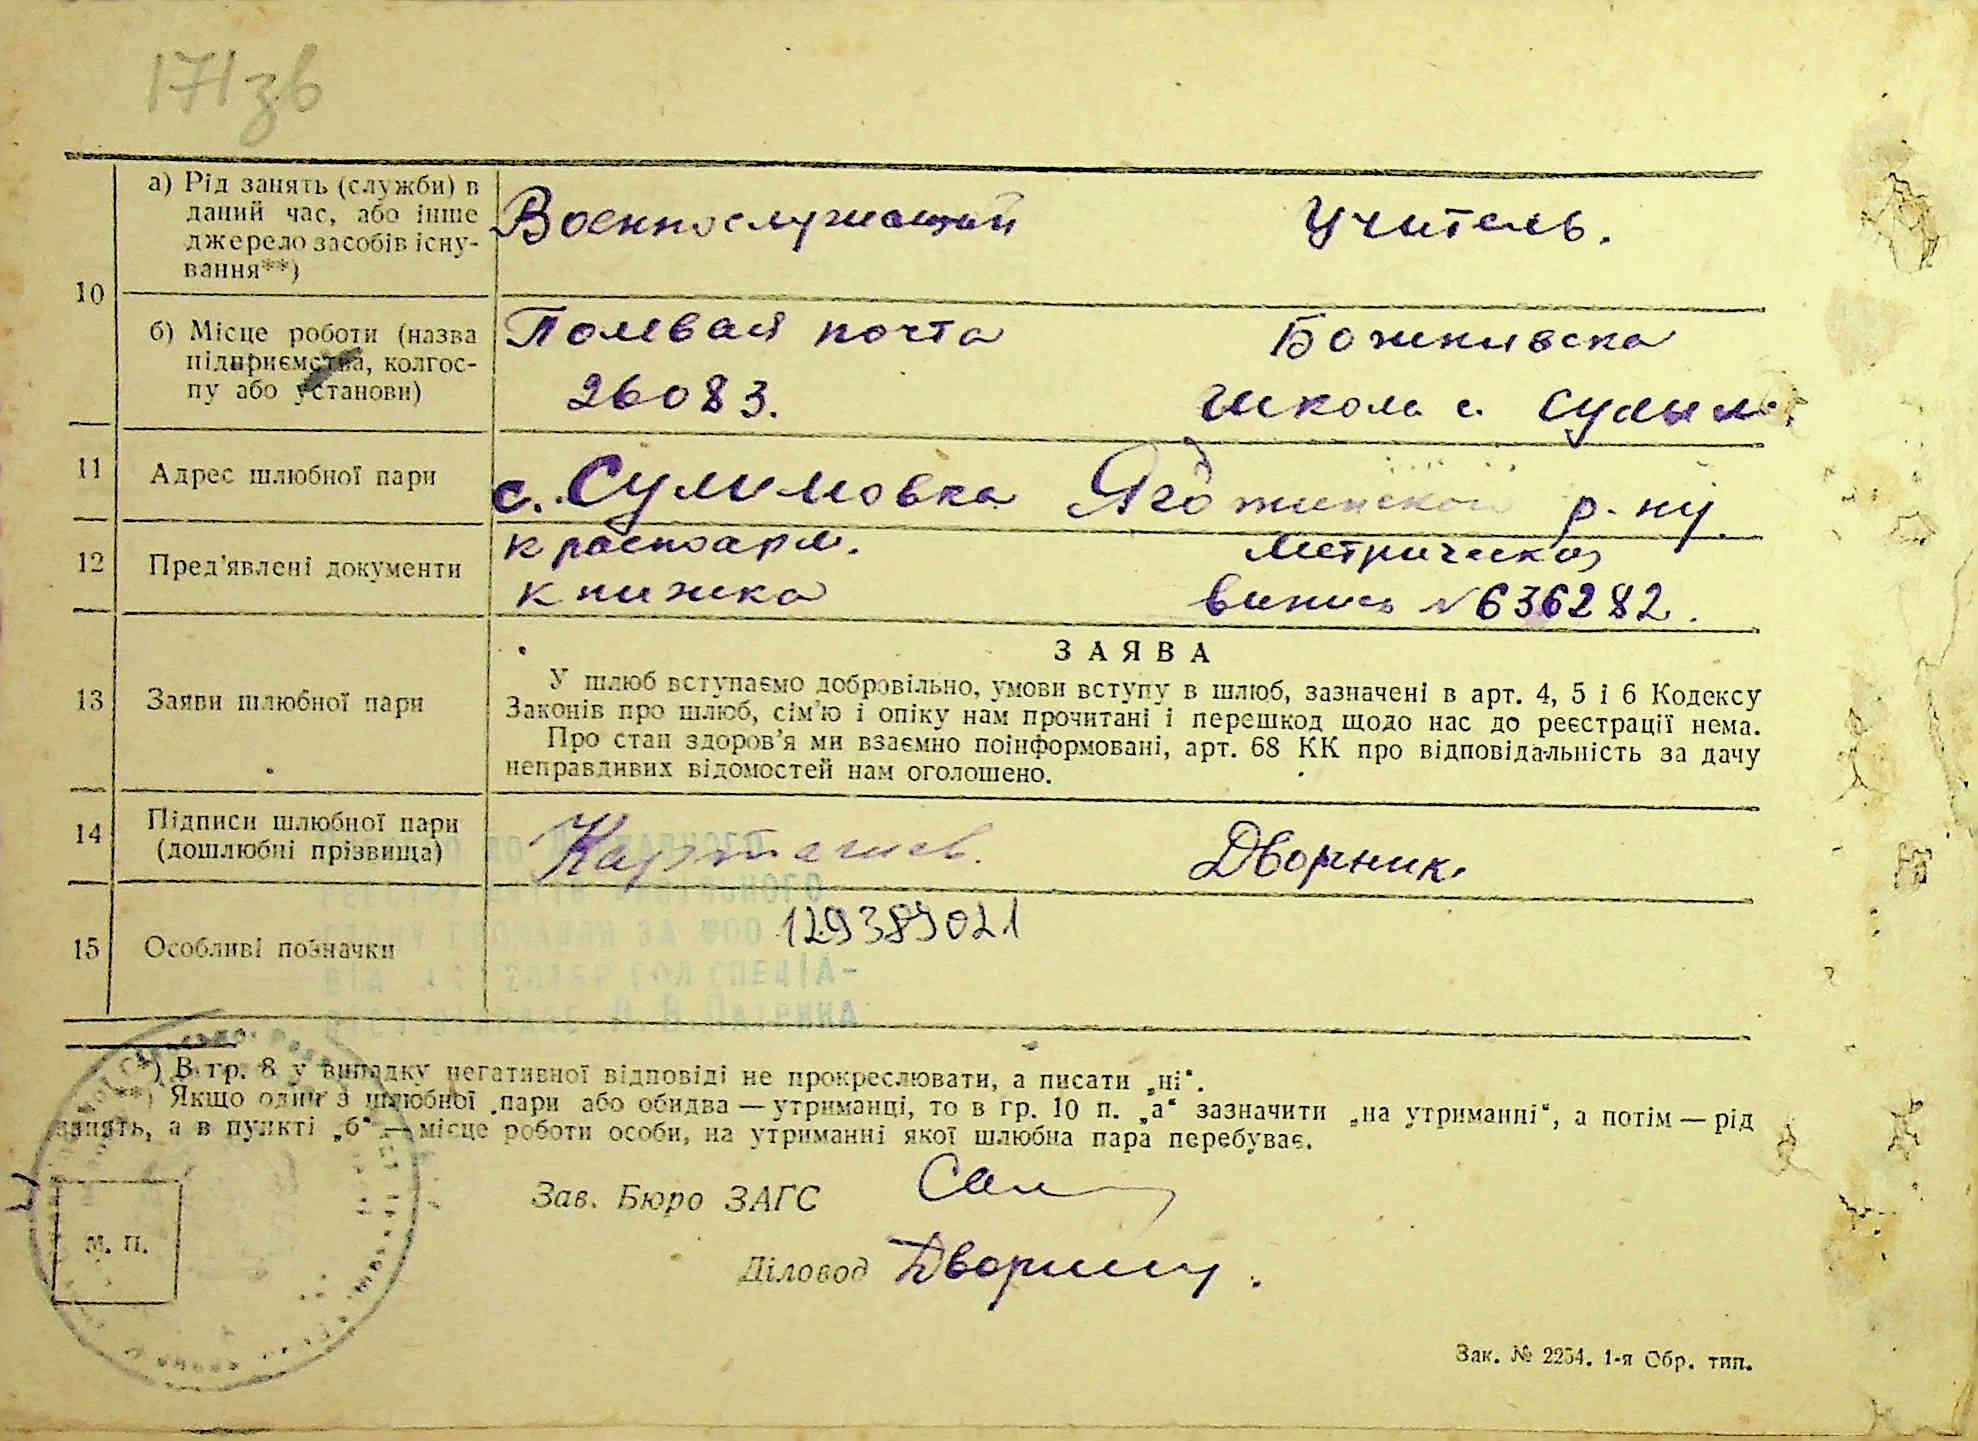 171зв
10
а) Рід занять (служби) в
даний час, або інше
джерело засобів існу-
вання**)
Военнослужащий
Учитель.
б) Місце роботи (назва
підприємства, колгос-
пу або установи)
Полевая почта
26083.
Божкивска
школа с. Сулым.
11
Адрес шлюбної пари
с. Сулимовка Яготинской р-ну
12
Пред'явлені документи
красноарм.
книжка
Метрическая
выпись № 636282.
13
Заяви шлюбної пари
ЗАЯВА
У шлюб вступаємо добровільно, умови вступу в шлюб, зазначені в арт. 4, 5 і 6 Кодексу
Законів про шлюб, сім'ю і опіку нам прочитані і перешкод щодо нас до реєстрації нема.
Про стан здоров'я ми взаємно поінформовані, арт. 68 КК про відповідальність за дачу
неправдивих відомостей нам оголошено.
14
Підписи шлюбної пари
(дошлюбні прізвища)
Карташев.
Дворник.
15
Особливі позначки
129389021
*) В гр. 8 у випадку негативної відповіді не прокреслювати, а писати „ні“.
**) Якщо один з шлюбної пари або обидва — утриманці, то в гр. 10 п. „а“ зазначити „на утриманні“, а потім — рід
занять, а в пункті „б“ — місце роботи особи, на утриманні якої шлюбна пара перебуває.
Зав. Бюро ЗАГС
Діловод
М. П.
Зак. № 2254. 1-я Обр. тип.